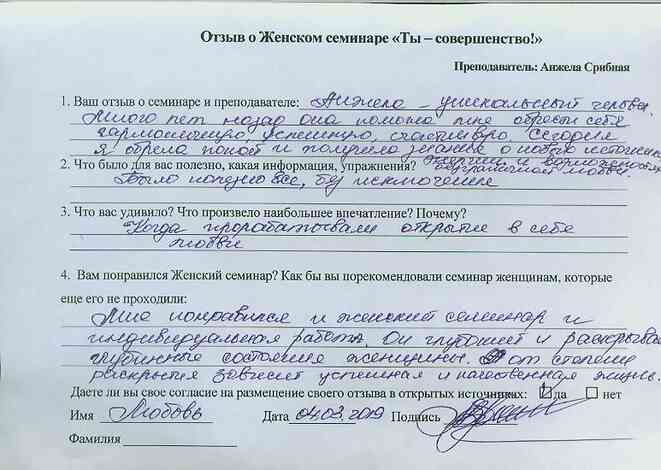 Отзыв о Женском семинаре «Ты – совершенство!»
Преподаватель: Анжела Срибная
1. Ваш отзыв о семинаре и преподавателе: Анжела – уникальный челове.
Много лет назад она помогла мне обрести себя
гармоничную, успешную, счастливую. Сегодня
я обрела покой и получила знания о новых источниках
энергии и возможностях
2. Что было для вас полезно, какая информация, упражнения? безграничной любви
Было полезно все, без исключения
3. Что вас удивило? Что произвело наибольшее впечатление? Почему?
Когда прорабатывали открытие в себе
любви
4. Вам понравился Женский семинар? Как бы вы порекомендовали семинар женщинам, которые
еще его не проходили:
Мне понравился и женский семинар и
индивидуальная работа. Он глубокий и раскрывае
глубинные состояния женщины. от степени
раскрытия зависит успешная и качественная жизнь.
Даете ли вы свое согласие на размещение своего отзыва в открытых источниках: да нет
Имя Любовь Дата 04.03.2019 Подпись
Фамилия